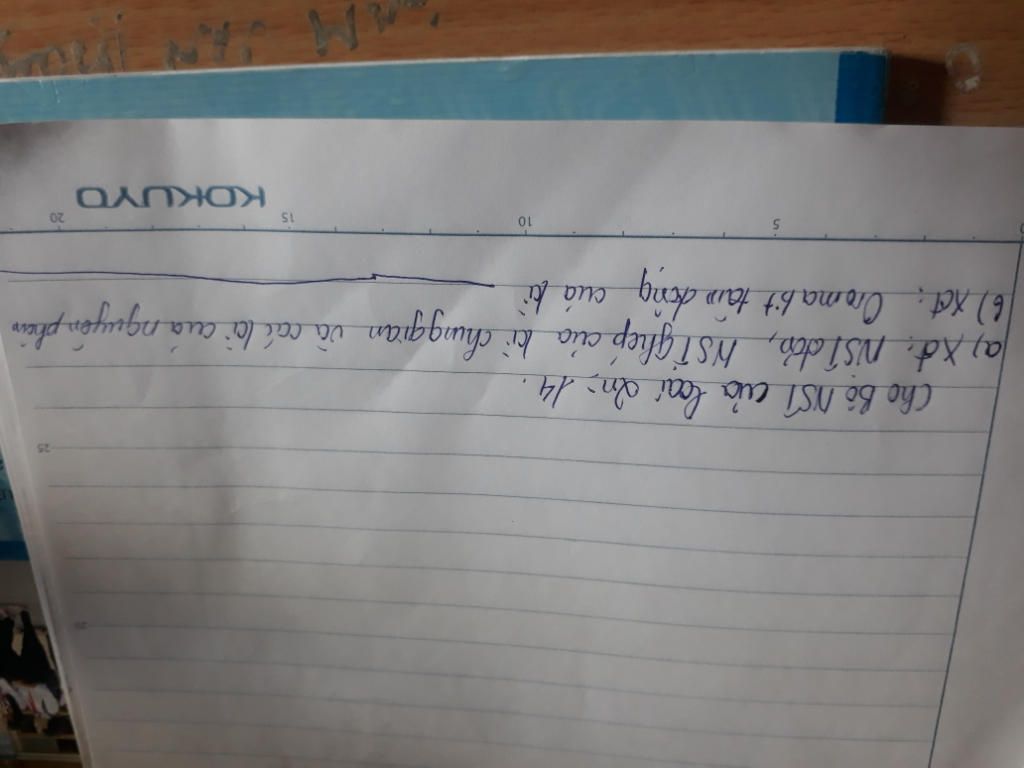 Cho Bộ NST của loài 2n = 14.
a) Xđ: NST đơn, NST ghép của kì trung gian và các kì của nguyên phân
b) Xđ: Cromatit tâm động của kì
5 10 15 20
KOKUYO
25